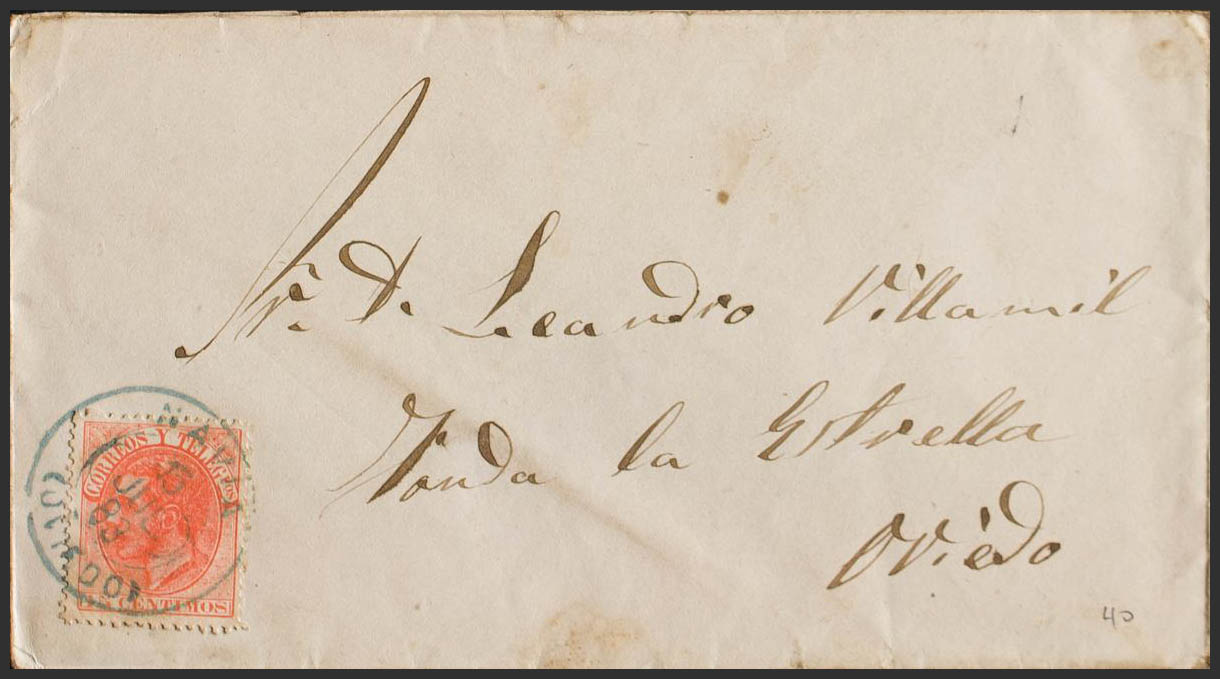 Sr. D. Leandro Villamil
Fonda la Estrella
Oviedo
CORREOS Y TELEGFOS
CENTIMOS
NAVIA
JUN
83
(OVIEDO)
40